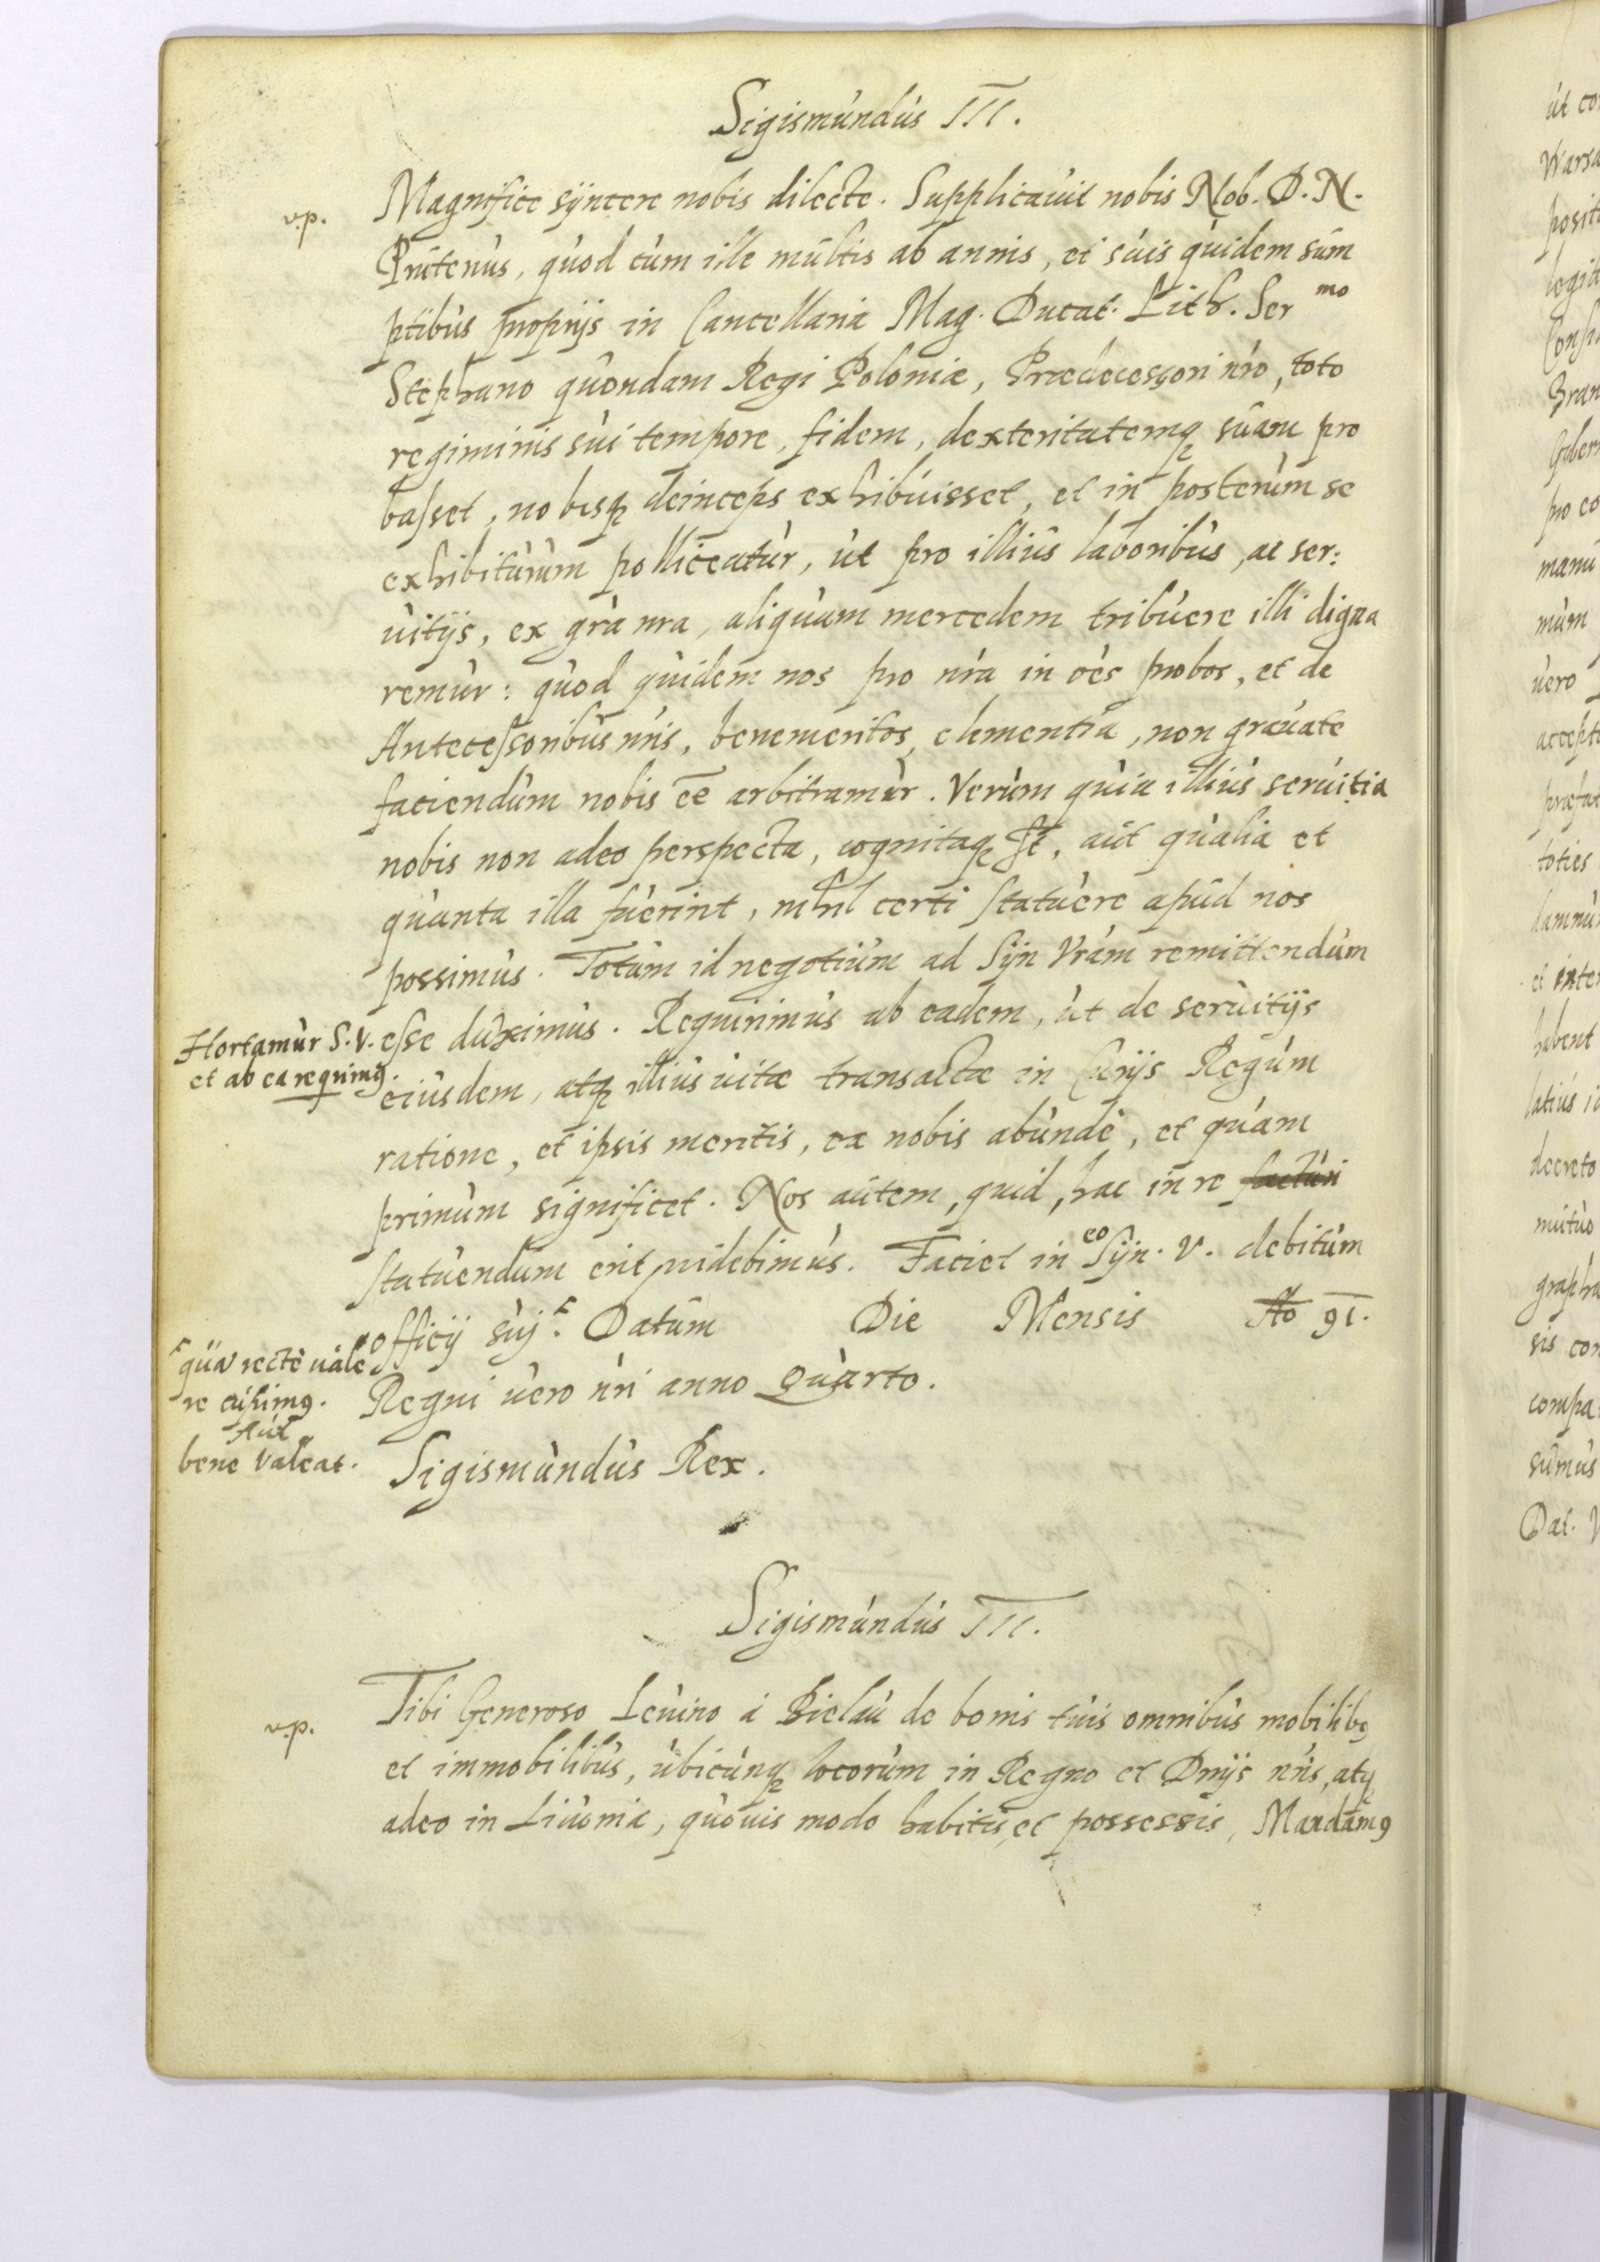 Sigismundus III.
v.p.
Magnifice syncere nobis dilecte. Supplicavit nobis Nob. D. N.
Prutenus, quod cum ille multis ab annis, et suis quidem sum
ptibus proprijs in Cancellaria Mag. Ducat. Lith. Ser mo
Stephano quondam Regi Poloniæ, Prædecessori nro, toto
regiminis sui tempore, fidem, dexteritatemq suam pro
basset, nobisq deinceps exhibuisset, et in posterum se
exhibiturum polliceatur, ut pro illius laboribus, ac ser:
uitijs, ex gra nra, aliquam mercedem tribuere illi digna
remur: quod quidem nos pro nra in oes probos, et de
Antecessoribus nris, benemeritos, clementia, non gravate
faciendum nobis ee arbitramur. Verum quia illius seruitia
nobis non adeo perspecta, cognitaq st, aut qualia et
quanta illa fuerint, nihil certi statuere apud nos
possimus. Totum id negotium ad Syn Vram remittendum
esse duximus. Requirimus ab eadem, ut de seruitijs
Hortamur S. V.
et ab ea reqrimg.
eiusdem, atq illius uitæ transactæ in Curijs Regum
ratione, et ipsis meritis, ea nobis abunde, et quam
primum significet. Nos autem, quid, hac in re facturi
statuendum erit, uidebimus. Faciet in eo Syn. V. debitum
officij suj. Datum Die Mensis Ao 91.
qua recte uale
re cupimg.
Aut
bene valeat.
Regni vero nri anno quarto.
Sigismundus Rex.
Sigismundus III.
v.p.
Tibi Generoso Leuino a Bielau de bonis tuis omnibus mobilibg
et immobilibus, ubicunq locorum in Regno et Dnijs nris, atq
adeo in Livonia, quovis modo habitis, et possessis, Mandamg